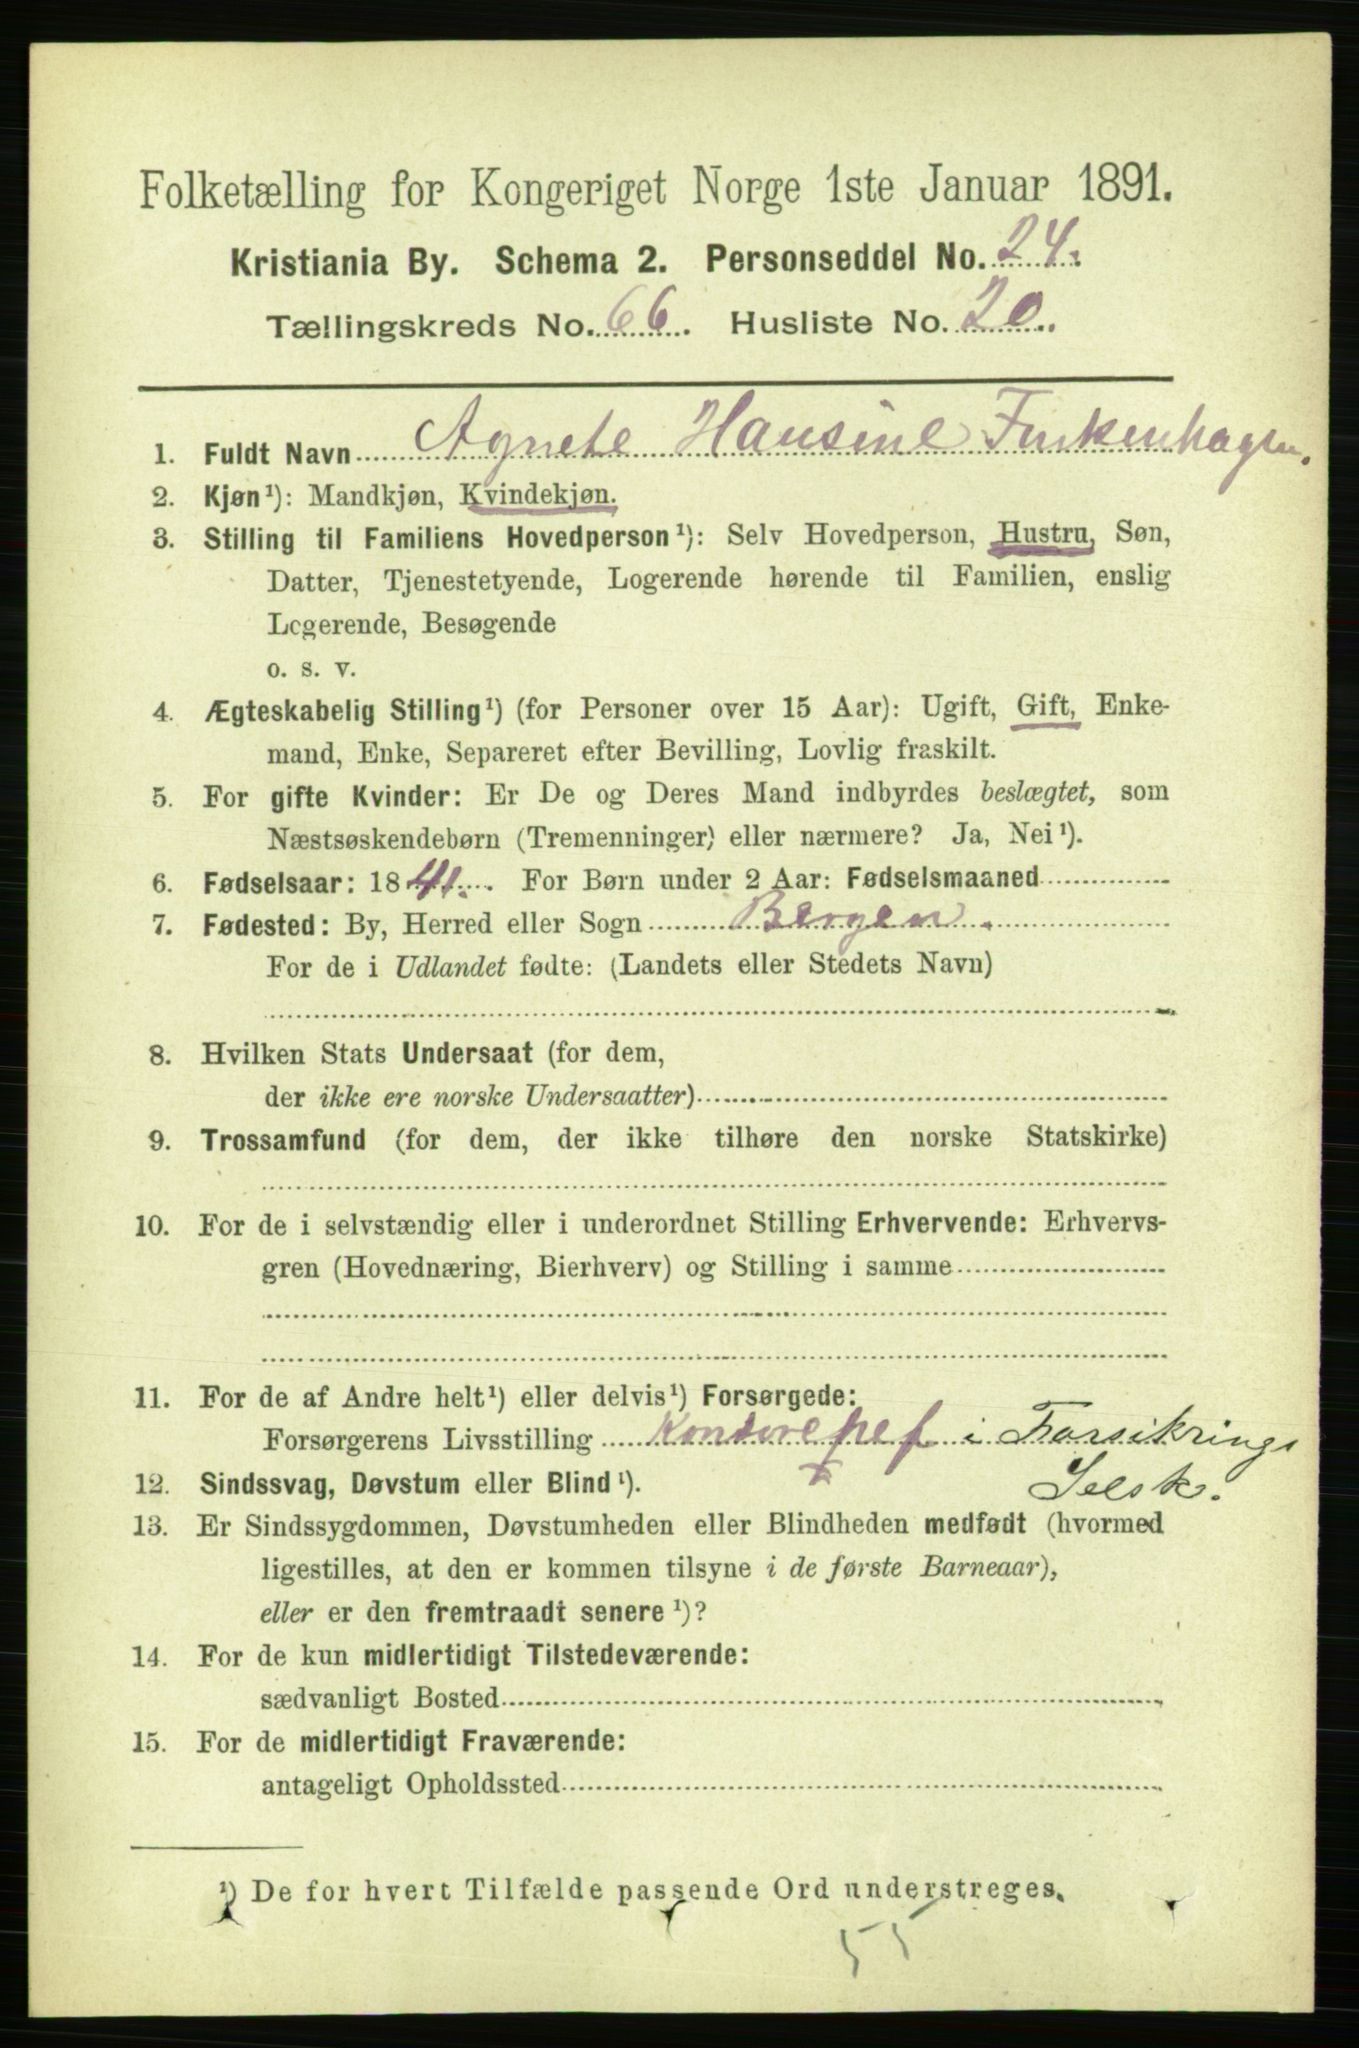 Folketælling for Kongeriget Norge 1ste Januar 1891.
Kristiania By. Schema 2. Personseddel No. 24.
Tællingskreds No. 66. Husliste No. 20.
1. Fuldt Navn Agnete Hansine Finkenhagen.
2. Kjøn¹): Mandkjøn, Kvindekjøn.
3. Stilling til Familiens Hovedperson¹): Selv Hovedperson, Hustru, Søn,
Datter, Tjenestetyende, Logerende hørende til Familien, enslig
Logerende, Besøgende
o. s. v.
4. Ægteskabelig Stilling¹) (for Personer over 15 Aar): Ugift, Gift, Enke-
mand, Enke, Separeret efter Bevilling, Lovlig fraskilt.
5. For gifte Kvinder: Er De og Deres Mand indbyrdes beslægtet, som
Næstsøskendebørn (Tremenninger) eller nærmere? Ja, Nei¹).
6. Fødselsaar: 1841. For Børn under 2 Aar: Fødselsmaaned
7. Fødested: By, Herred eller Sogn Bergen.
For de i Udlandet fødte: (Landets eller Stedets Navn)
8. Hvilken Stats Undersaat (for dem,
der ikke ere norske Undersaatter)
9. Trossamfund (for dem, der ikke tilhøre den norske Statskirke)
10. For de i selvstændig eller i underordnet Stilling Erhvervende: Erhvervs-
gren (Hovednæring, Bierhverv) og Stilling i samme
11. For de af Andre helt¹) eller delvis¹) Forsørgede:
Forsørgerens Livsstilling i Forsikrings
Selsk.
12. Sindssvag, Døvstum eller Blind¹).
13. Er Sindssygdommen, Døvstumheden eller Blindheden medfødt (hvormed
ligestilles, at den er kommen tilsyne i de første Barneaar),
eller er den fremtraadt senere¹)?
14. For de kun midlertidigt Tilstedeværende:
sædvanligt Bosted
15. For de midlertidigt Fraværende:
antageligt Opholdssted
¹) De for hvert Tilfælde passende Ord understreges.
55